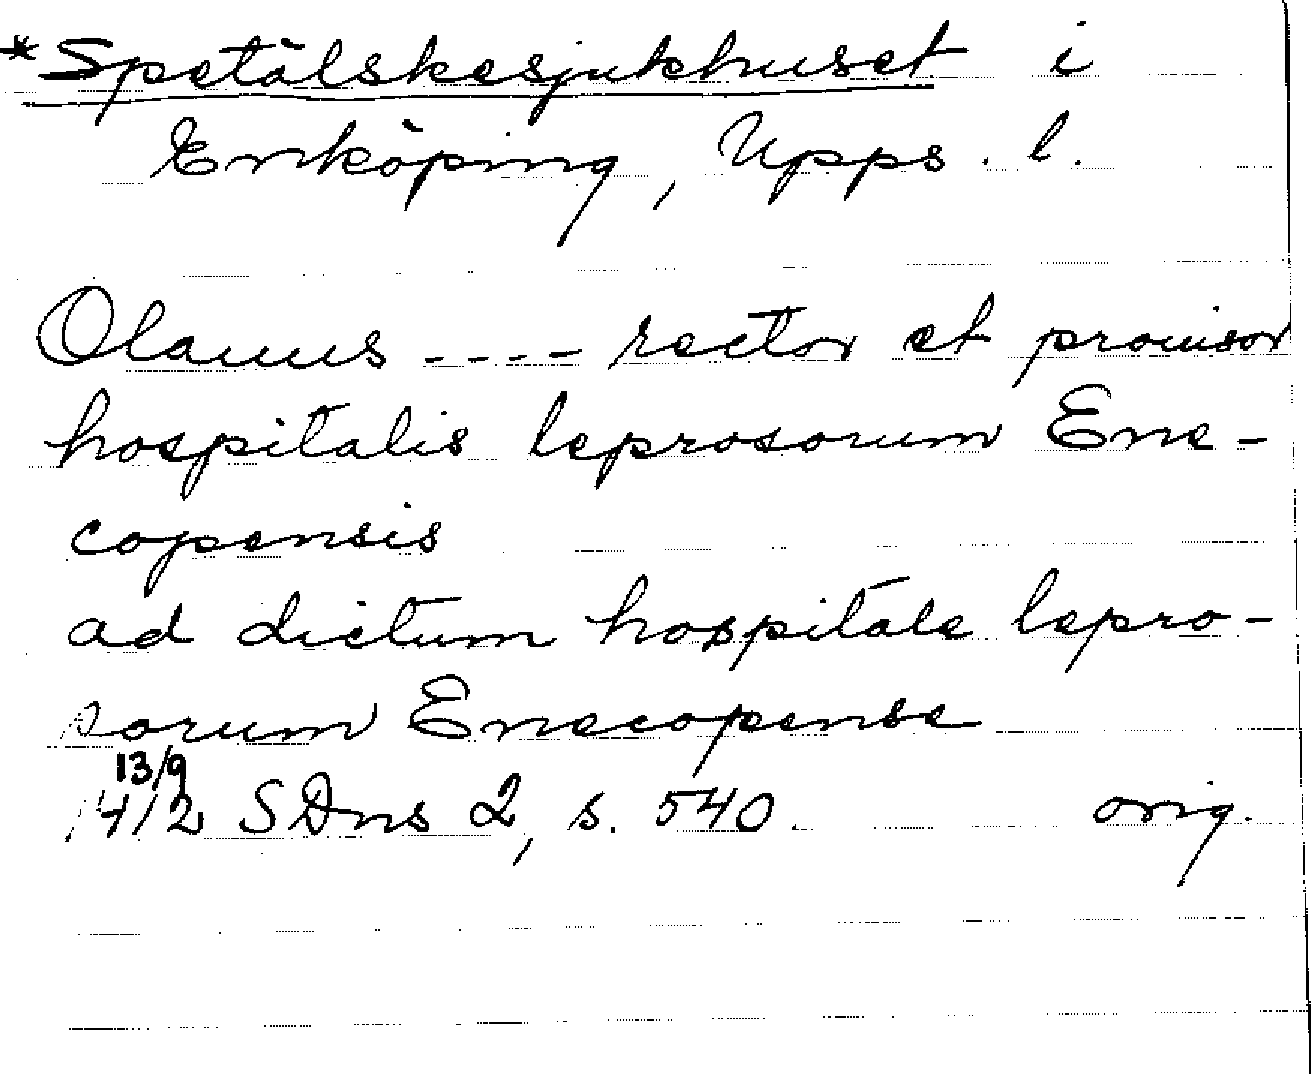 *Spetälskesjukhuset i
Enköping, Upps. l.
Olauus ---- rector et prouisor
hospitalis leprosorum Ene-
copensis
ad dictum hospitale lepro-
sorum Enecopense
13/9
1412 SDns 2, s. 540. orig.